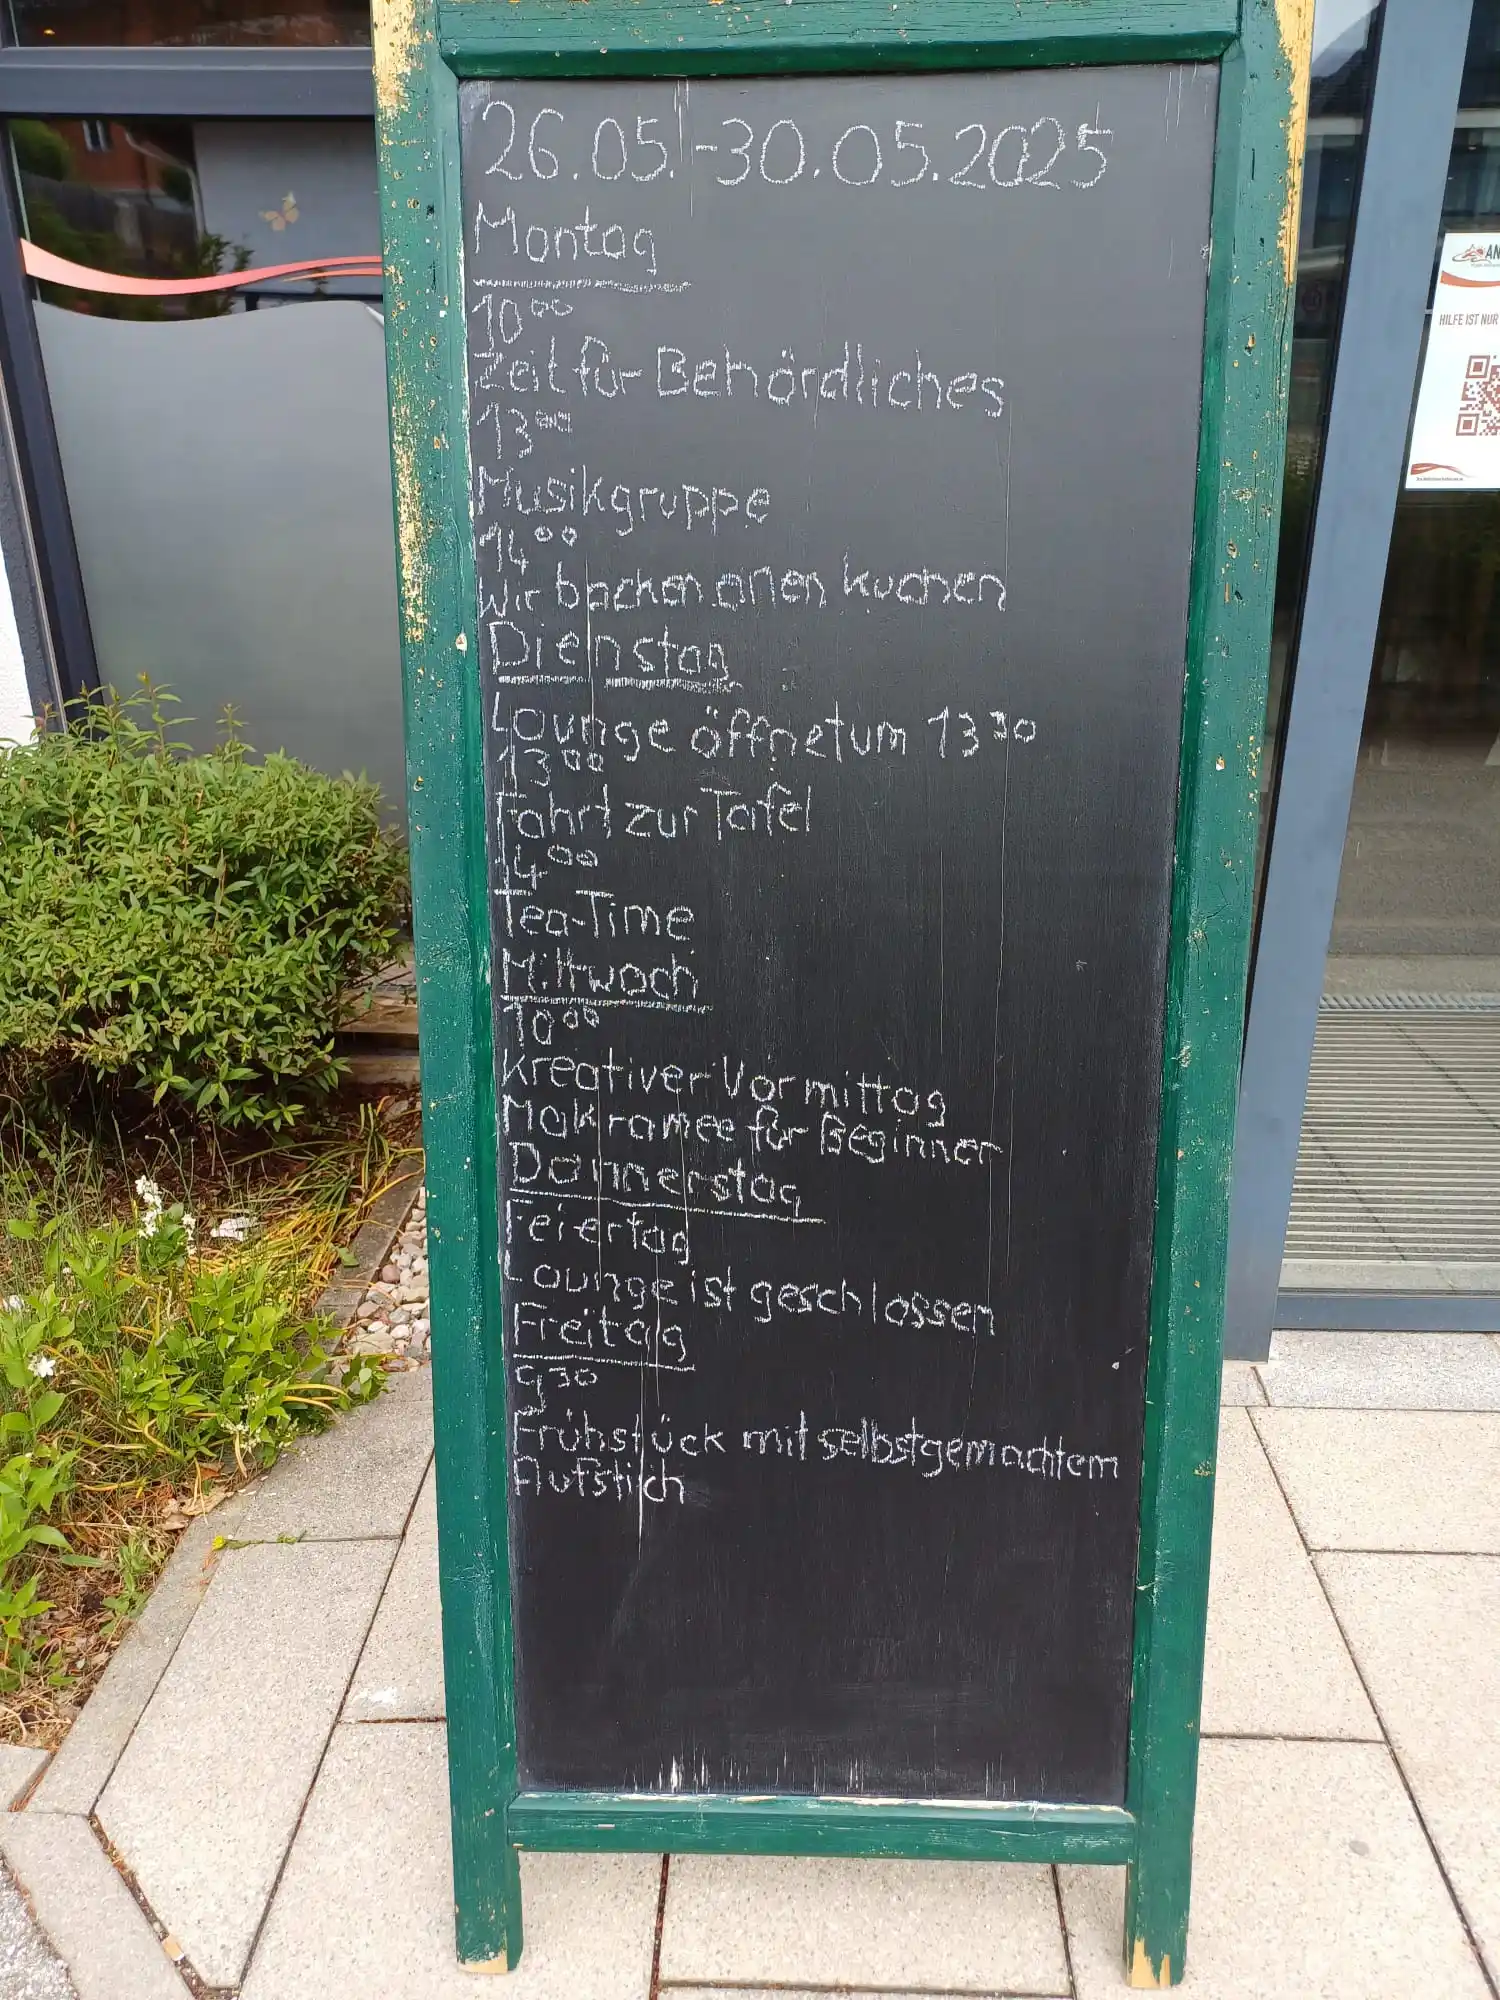 26.05.-30.05.2025
Montag
10⁰⁰
Zeit für Behördliches
13⁰⁰
Musikgruppe
14⁰⁰
Wir backen einen kuchen
Dienstag
Lounge öffnet um 13³⁰
13⁰⁰
Fahrt zur Tafel
14⁰⁰
Tea-Time
Mittwoch
10⁰⁰
Kreativer Vormittag
Makramee für Beginner
Donnerstag
Feiertag
Lounge ist geschlossen
Freitag
9³⁰
Frühstück mit selbstgemachtem
Aufstich
AN
HILFE IST NUR